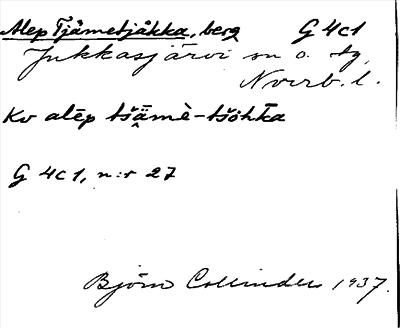 Alep Tjåmetjåkka, berg G 4c1
Jukkasjärvi sn o. tg,
Norrb. l.
Kv alēp tšāmè-tšohkka
G 4c1, n:r 27
Björn Collinder 1937.